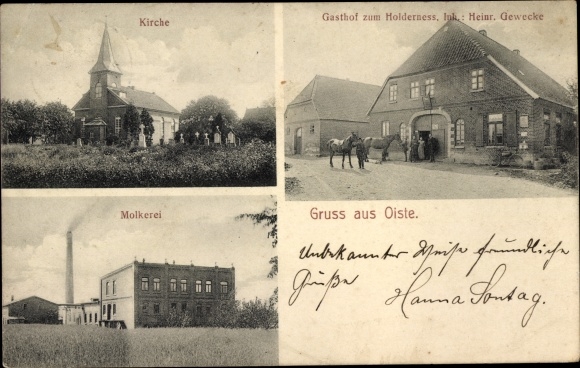 Kirche
Gasthof zum Holderness, Inh.: Heinr. Gewecke
Molkerei
Gruss aus Oiste.
Unbekannter Weise freundliche
Grüße
Hanna Sontag.